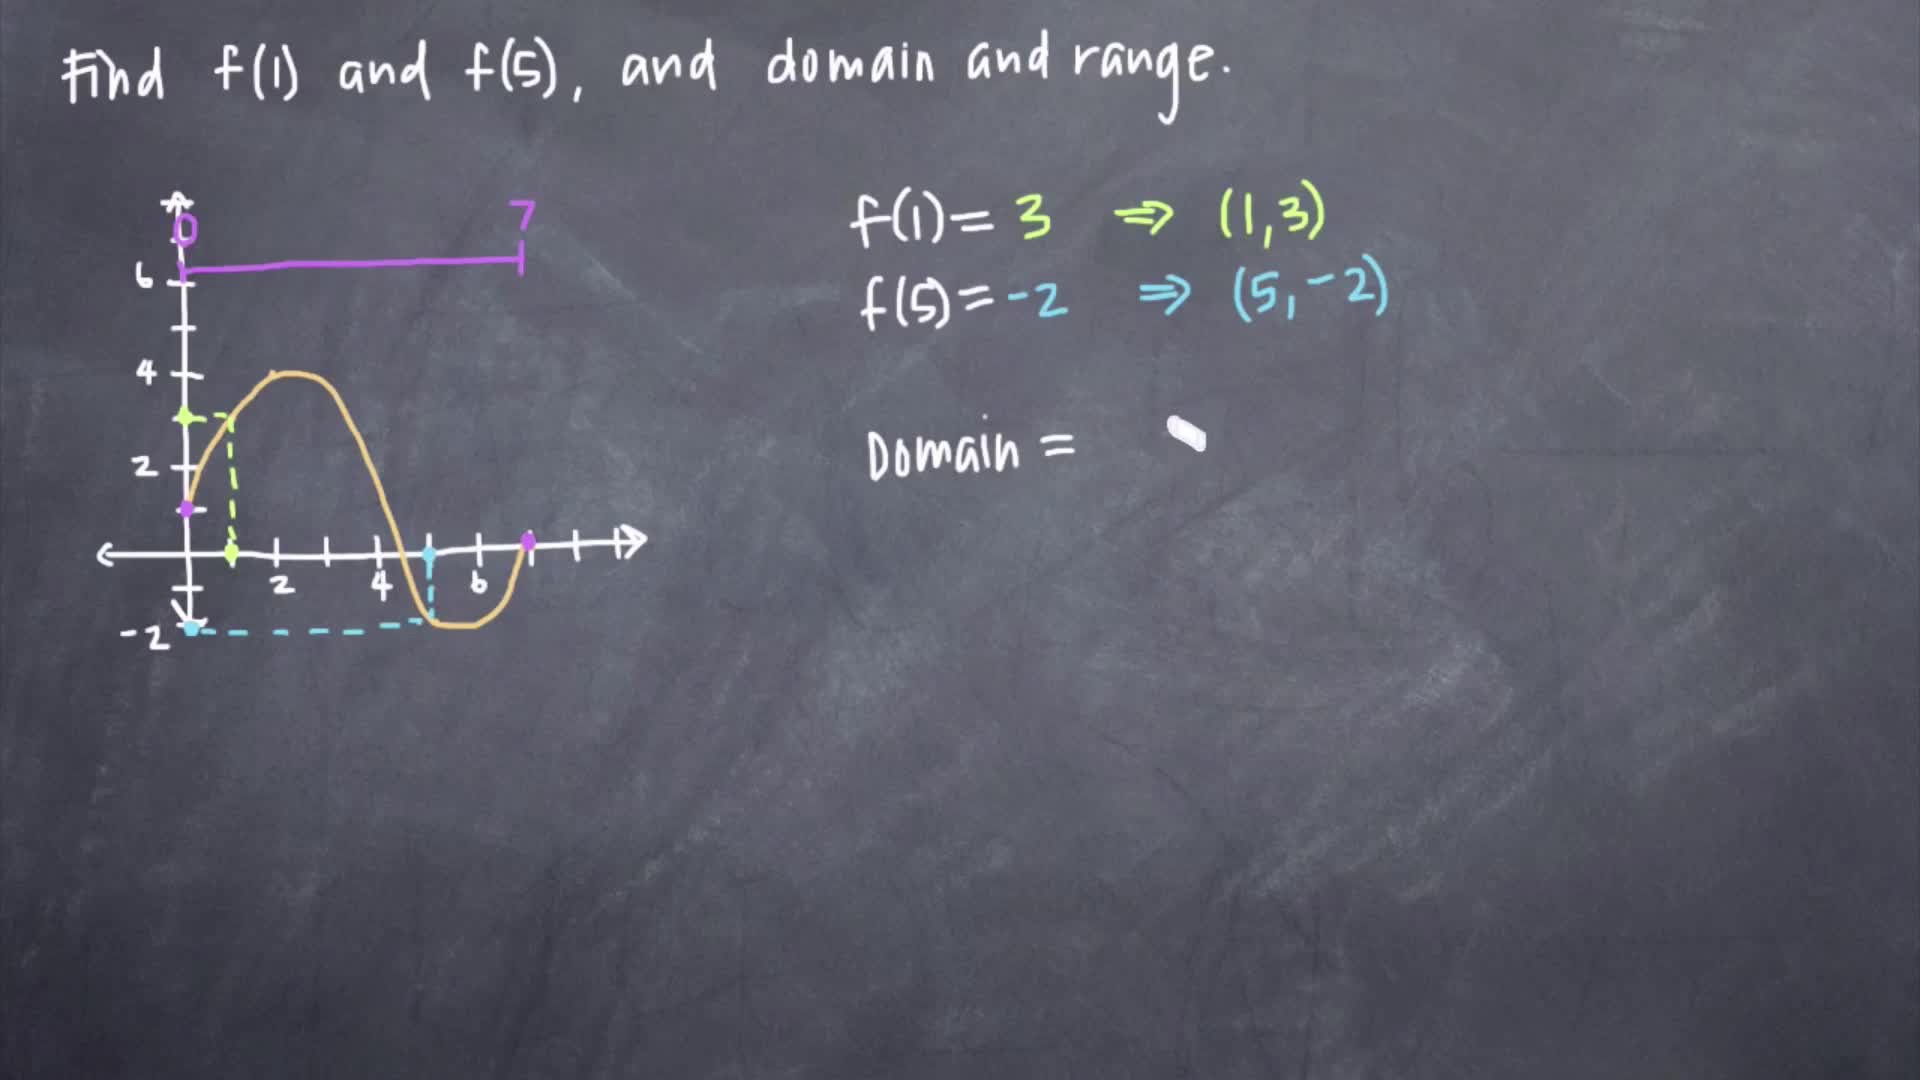 Find f(1) and f(5), and domain and range.
f(1)= 3 ⇒ (1,3)
f(5)= -2 ⇒ (5,-2)
Domain =
0 7
6
4
2
2 4 6
-2